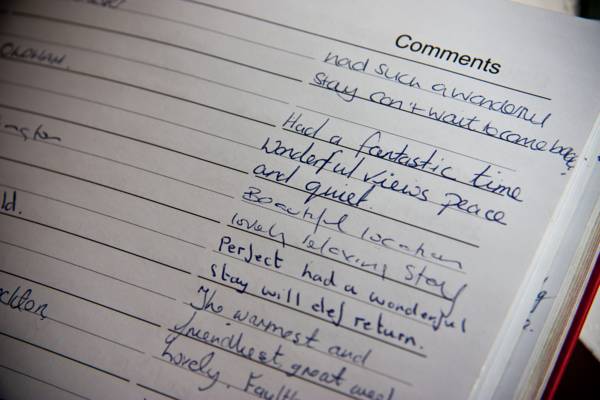 Comments
had such a wonderful
stay can't wait to come back
Had a fantastic time
wonderful views peace
and quiet.
Beautiful location
lovely relaxing stay
Perfect had a wonderful
stay will def return.
The warmest and
friendliest great meal
Lovely.